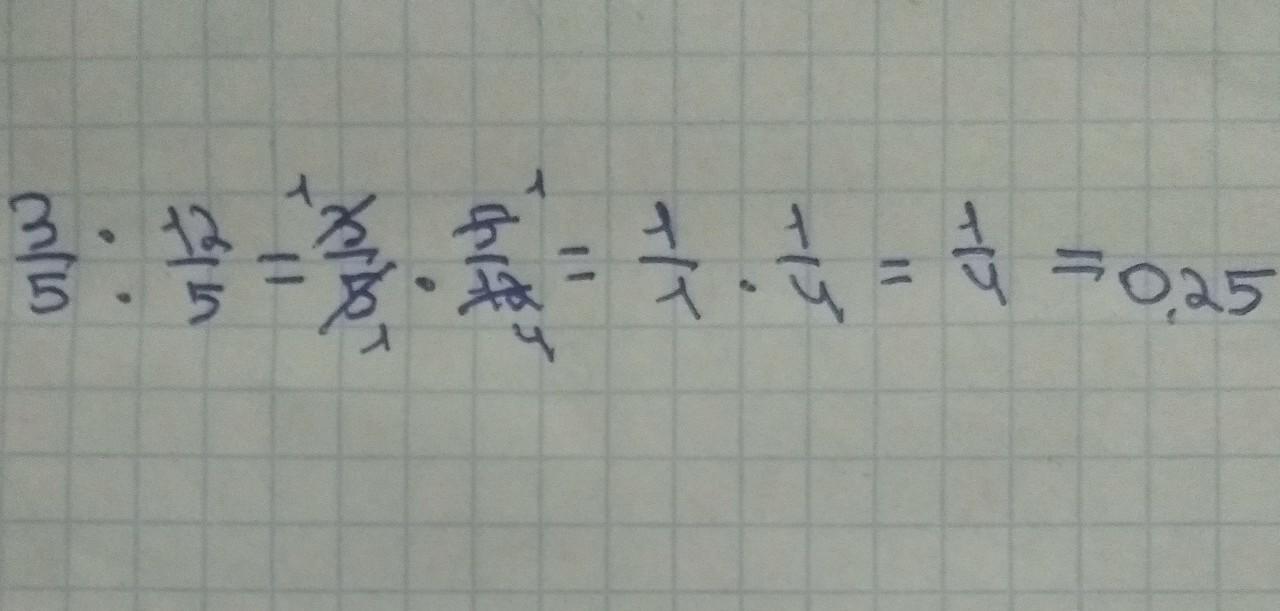 3/5 : 12/5 = ¹3/5₁ · 5¹/12₄ = 1/1 · 1/4 = 1/4 = 0,25